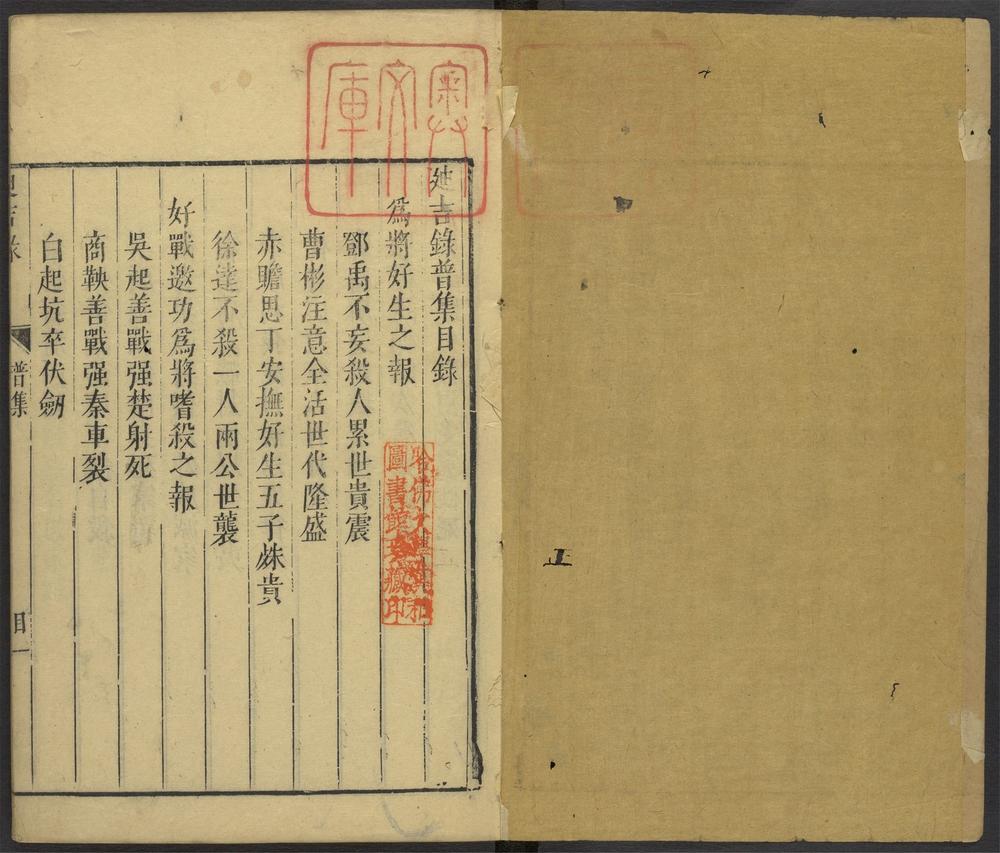 迪吉錄普集目錄
爲將好生之報
鄧禹不妄殺人累世貴震
曹彬注意全活世代隆盛
赤瞻思丁安撫好生五子烋貴
徐達不殺一人兩公世襲
好戰邀功爲將嗜殺之報
吳起善戰强楚射死
商鞅善戰强秦車裂
白起坑卒伏劒
普集
目一
哈佛大學漢和
圖書館珍藏印